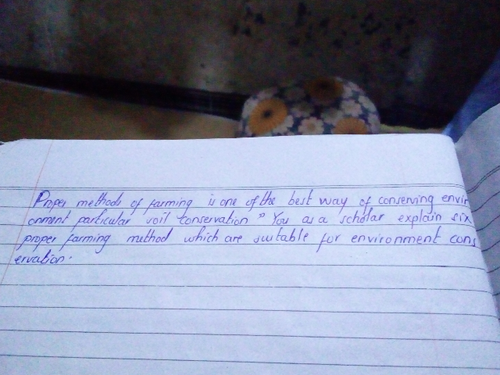 Proper methods of farming is one of the best way of conserving envir
onment particular soil conservation" You as a scholar explain six
proper farming method which are suitable for environment cons
ervation.